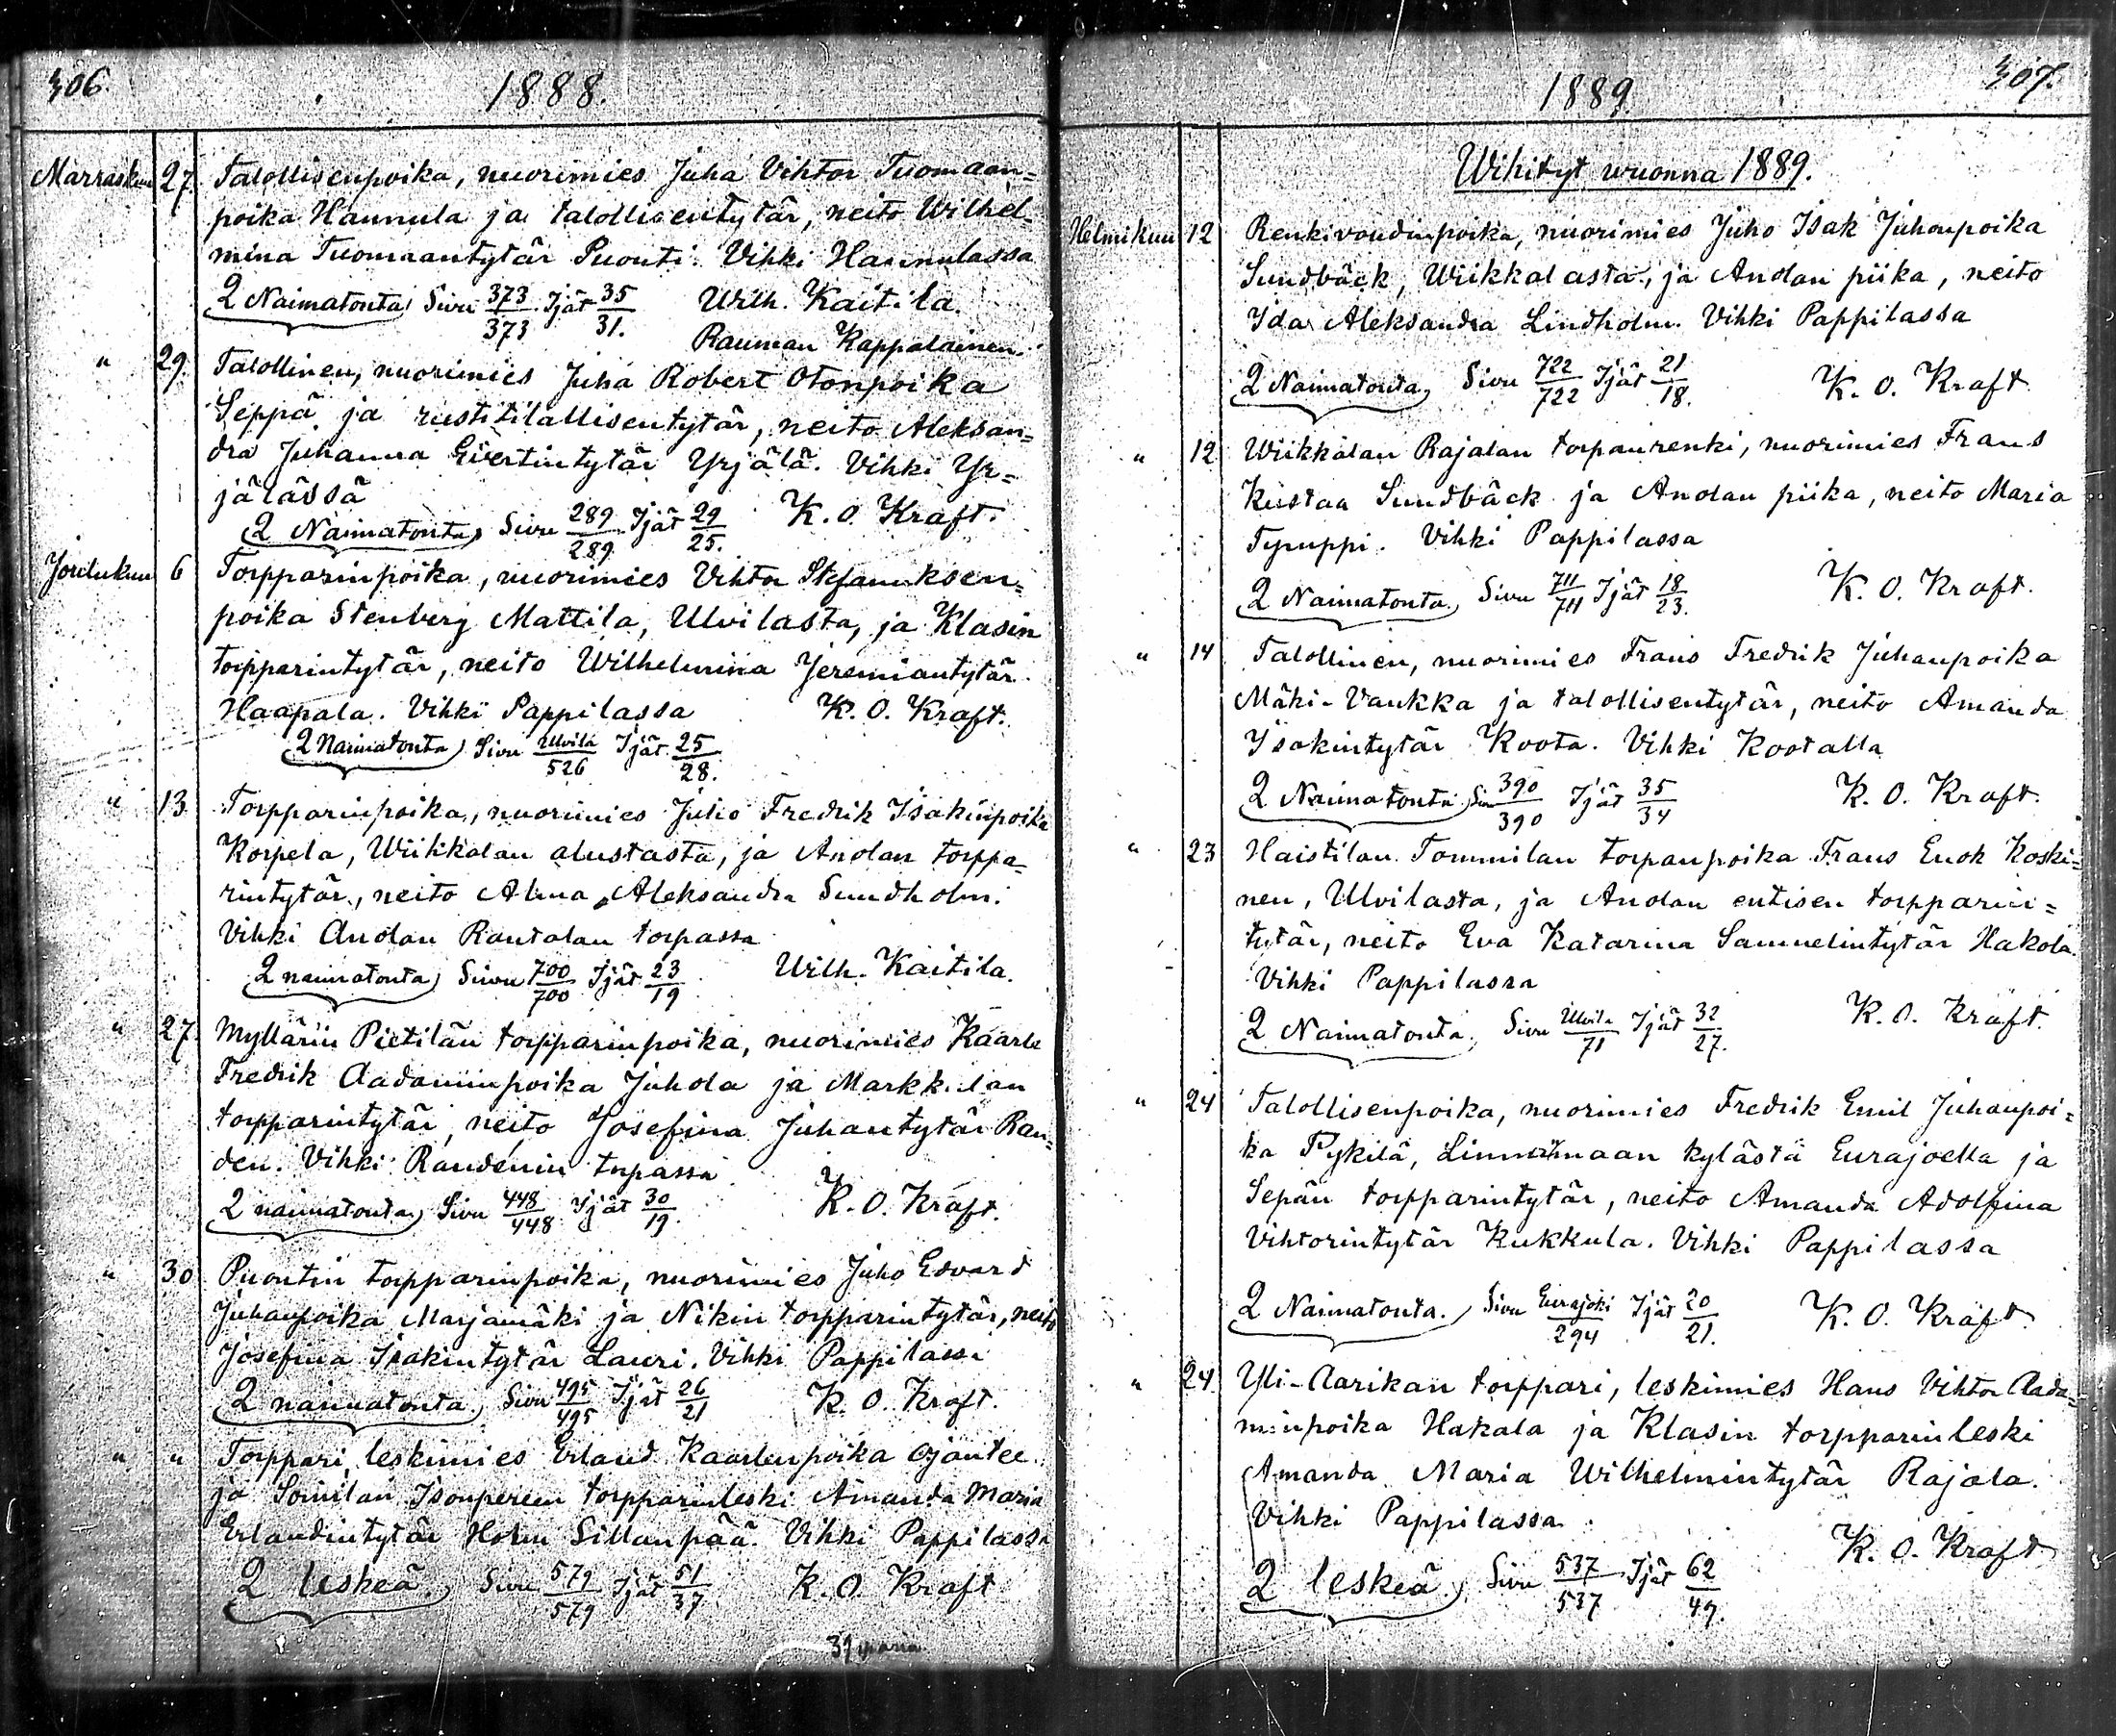 306.
1888.
Marraskuu 27. Talollisenpoika, nuorimies Juha Vihtor Tuomaan=
poika Hannula ja talollisentytär, neito Wilhel-
mina Tuomaantytär Puonti. Vihki Hannulassa
2 Naimatonta Sivu 373/373 Ijät 35/31. Wilh. Kaitila.
Rauman Kappalainen.
" 29. Talollinen, nuorimies Juha Robert Otonpoika
Seppä ja rustitilallisentytär, neito Aleksan=
dra Juhanna Evertintytär Yrjälä. Vihki Yr=
jälässä
2 Naimatonta Sivu 289/289 Ijät 29/25. K. O. Kraft.
Joulukuu 6 Torpparinpoika, nuorimies Vihtor Stefanuksen=
poika Stenberg Mattila, Ulvilasta, ja Klasin
torpparintytär, neito Wilhelmina Jeremiantytär
Haapala. Vihki Pappilassa K. O. Kraft.
2 Naimatonta Sivu Ulvila/526 Ijät 25/28.
" 13 Torpparinpoika, nuorimies Juho Fredrik Isakinpoika
Korpela, Wiikkalan alustasta, ja Anolan torppa-
rintytär, neito Alma Aleksandra Sundholm.
Vihki Anolan Rantalan torpassa
2 naimatonta Sivu 700/700 Ijät 23/19 Wilh. Kaitila.
" 27. Myllärin Pietilän torpparinpoika, nuorimies Kaarle
Fredrik Aadaminpoika Juhola ja Markkulan
torpparintytär, neito Josefina Juhantytär Ran-
den. Vihki Randenin torpassa
2 naimatonta Sivu 448/448 Ijät 30/19. K. O. Kraft.
" 30 Puontin torpparinpoika, nuorimies Juho Edvard
Juhanpoika Marjamäki ja Nikin torpparintytär, neito
Josefina Isakintytär Lauri. Vihki Pappilassa
2 naimatonta Sivu 495/495 Ijät 26/21 K. O. Kraft.
" " Torppari, leskimies Erland Kaarlenpoika Ojantee
ja Soinilan torpparinleski Amanda Maria
Erlandintytär Holm Sillanpää. Vihki Pappilassa
2 leskeä Sivu 579/579 Ijät 51/37. K. O. Kraft
39 paria
307.
1889.
Wihityt wuonna 1889.
Helmikuu 12 Renkivoudinpoika, nuorimies Juho Isak Juhonpoika
Sundbäck, Wiikkalasta, ja Anolan piika, neito
Ida Aleksandra Lindholm. Vihki Pappilassa
2 Naimatonta Sivu 722/722 Ijät 21/18. K. O. Kraft
" 12 Wiikkalan Rajalan torpanrenki, nuorimies Frans
Kustaa Sundbäck ja Anolan piika, neito Maria
Typuppi. Vihki Pappilassa
2 Naimatonta. Sivu 711/711 Ijät 18/23. K. O. Kraft.
" 14 Talollinen, nuorimies Frans Fredrik Juhanpoika
Mäki-Vaukka ja talollisentytär, neito Amanda
Isakintytär Koota. Vihki Kootalla
2 Naimatonta Sivu 390/390 Ijät 35/34 K. O. Kraft.
" 23 Haistilan Tommilan torpanpoika Frans Enok Koski=
nen, Ulvilasta, ja Anolan entisen torpparin=
tytär, neito Eva Katarina Samuelintytär Hakola.
Vihki Pappilassa
2 Naimatonta. Sivu Ulvila/71 Ijät 32/27. K. O. Kraft.
" 24 Talollisenpoika, nuorimies Fredrik Emil Juhanpoi=
ka Pykilä, Linnamaan kylästä Eurajoella ja
Sepän torpparintytär, neito Amanda Adolfina
Vihtorintytär Kukkula. Vihki Pappilassa
2 Naimatonta. Sivu Eurajoki/294 Ijät 20/21. K. O. Kraft.
" 24 Yli-Aarikan torppari, leskimies Hans Vihtor Aada=
minpoika Hakala ja Klasin torpparinleski
Amanda Maria Wilhelmintytär Rajala.
Vihki Pappilassa.
2 leskeä Sivu 537/537 Ijät 62/49. K. O. Kraft